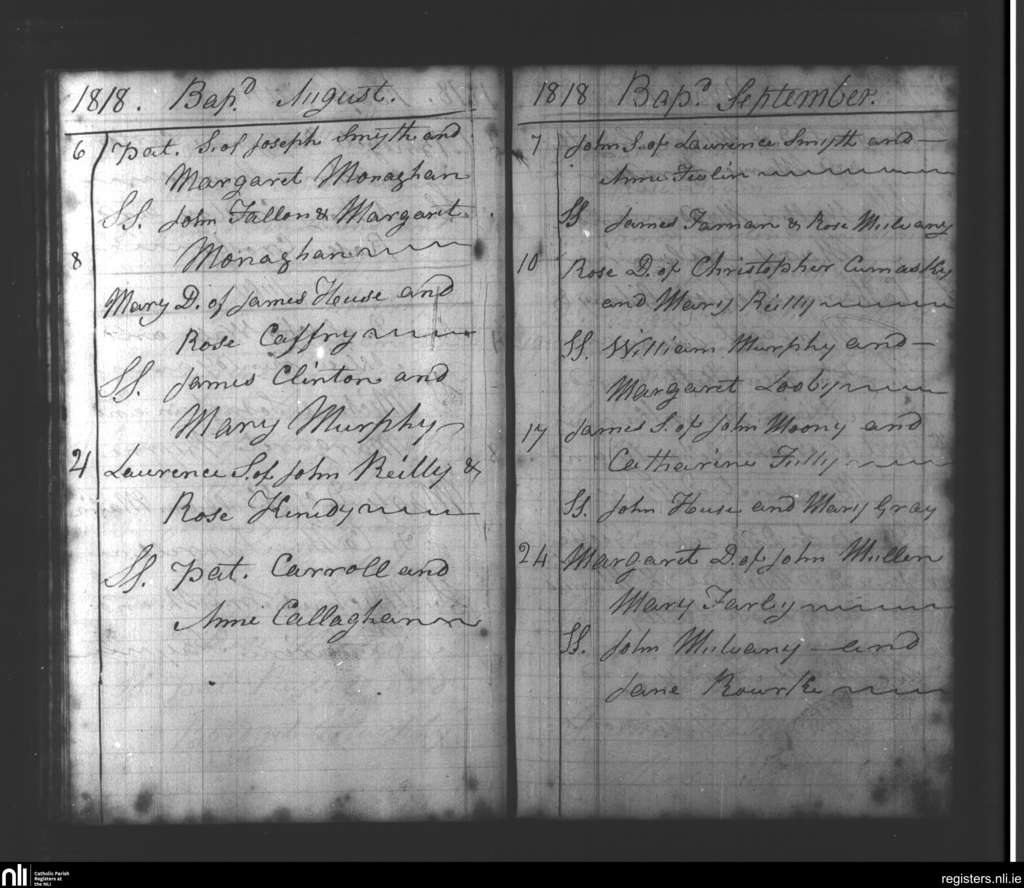 1818. Bap.d August.
6 Pat. S. of Joseph Smyth and
Margaret Monaghan
SS. John Fallon & Margaret
Monaghan
8
Mary D. of James Heuse and
Rose Caffry
SS. James Clinton and
Mary Murphy
21 Laurence S. of John Reilly &
Rose Kenedy
SS. Pat. Carroll and
Anne Callaghan
1818 Bap.d September.
7 John S. of Laurence Smyth and
Anne
SS James Farnan & Rose Mulvany
10 Rose D. of Christopher Cumasky
and Mary Reilly
SS. William Murphy and
Margaret Looby
17 James S. of John Moony and
Catharine
SS. John Heuse and Mary Gray
24 Margaret D. of John Mullen
Mary Farley
SS. John Mulvany and
Jane Rourke
nli Catholic Parish
Registers at
the NLI
registers.nli.ie